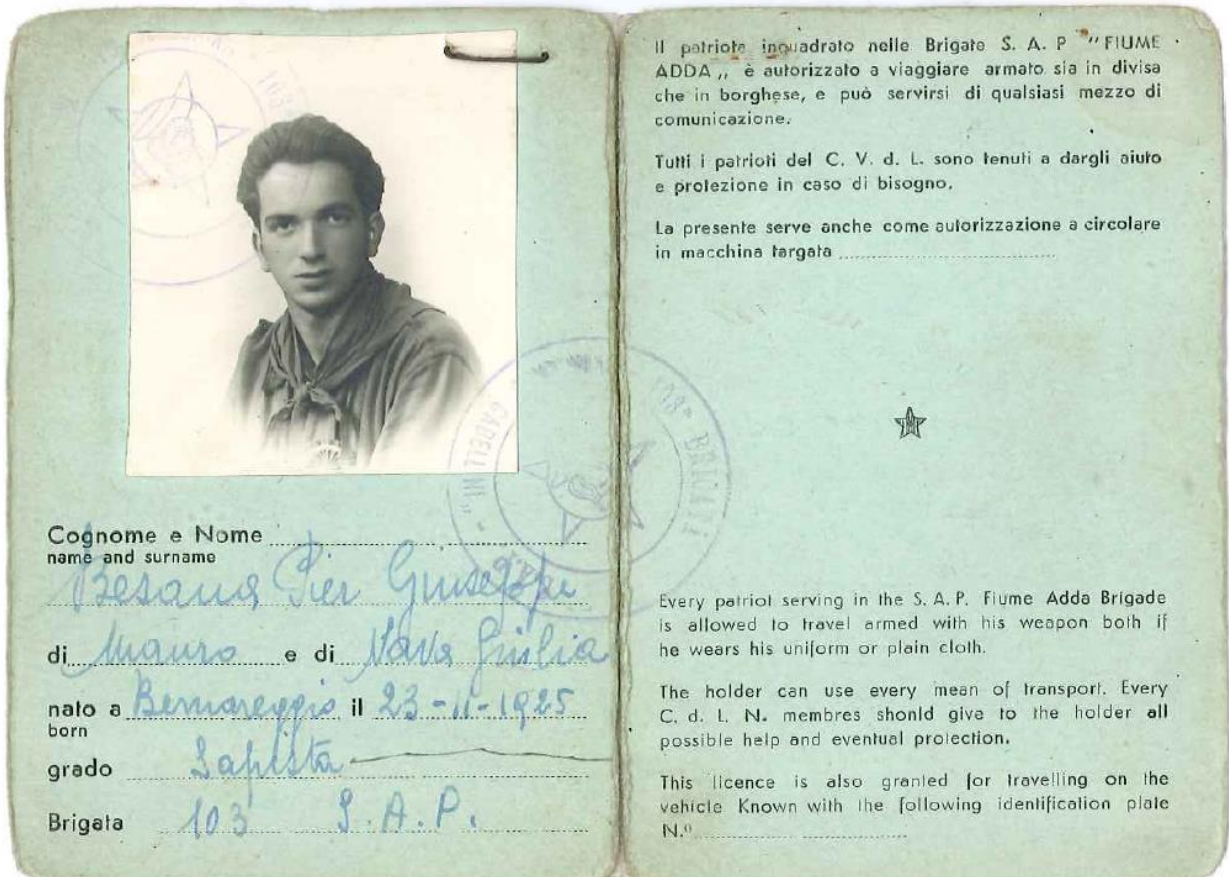 Cognome e Nome
name and surname
Besana Pier Giuseppe
di Mauro e di Nava Giulia
nato a Bernareggio il 23-11-1925
born
grado Sapista
Brigata 103 S.A.P.
103ª BRIGATA
GABELLINI„
Il patriota inquadrato nelle Brigate S. A. P "FIUME
ADDA„ è autorizzato a viaggiare armato sia in divisa
che in borghese, e può servirsi di qualsiasi mezzo di
comunicazione.
Tutti i patrioti del C. V. d. L. sono tenuti a dargli aiuto
e protezione in caso di bisogno.
La presente serve anche come autorizzazione a circolare
in macchina targata
Every patriot serving in the S. A. P. Fiume Adda Brigade
is allowed to travel armed with his weapon both if
he wears his uniform or plain cloth.
The holder can use every mean of transport. Every
C. d. L. N. membres should give to the holder all
possible help and eventual protection.
This licence is also granted for travelling on the
vehicle Known with the following identification plate
N.º